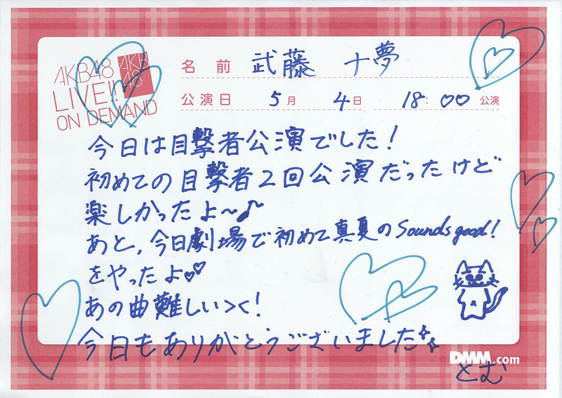 AKB48
LIVE!!
ON DEMAND
AKB
48
名前 武藤 十夢
公演日 5月 4日 18:00 公演
今日は目撃者公演でした!
初めての目撃者2回公演だったけど
楽しかったよ〜♪
あと、今日劇場で初めて真夏のSounds good!
をやったよ♡♡
あの曲難しい><!
今日もありがとうございました
DMM.com
とむ